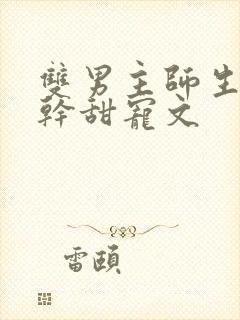 雙男主師生
幹甜寵文
雷頤